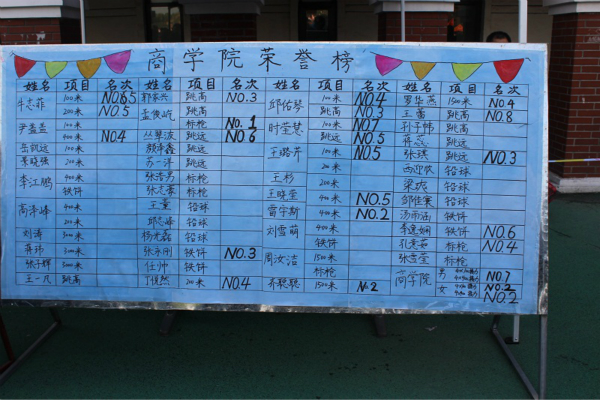 商学院荣誉榜
姓名 项目 名次 姓名 项目 名次 姓名 项目 名次 姓名 项目 名次
牛志菲 100米 NO.6.5 跳高 NO.3 邱佑琴 100米 NO.4 1500米 NO.4
200米 NO.5 孟俊屹 跳高 跳高 NO.3 王蕾 跳高 NO.8
尹孟孟 100米 标枪 NO.1 时莹慧 100米 NO.7 孙子伟 跳高
400米 NO.4 丛翠波 跳远 NO.6 跳远 NO.5 蒋蕊 跳远
岳凯远 100米 颜承鑫 跳远 王璐芹 100米 NO.5 张琪 跳远 NO.3
景晓强 200米 苏一洋 跳高 200米 铅球
李江鹏 400米 张浩男 标枪 王杉 100米 梁欢 铅球
铁饼 张志豪 标枪 200米
高泽峰 400米 王童 铅球 王晓莹 400米 NO.5 邹佳寰 铅球
200米 邱志峰 铅球 雷宇斯 400米 NO.2 汤雨涵 铁饼
刘涛 杨光磊 铅球 刘雪萌 400米 李逸娴 铁饼 NO.6
蒋玮 张永刚 铁饼 NO.3 铁饼 孔孝茹 标枪 NO.4
张子辉 5000米 任帅 铁饼 周汝洁 1500米 张萱莹 标枪
王一凡 跳高 丁俊然 200米 NO.4 标枪 商学院 男 NO.7
齐聪聪 1500米 NO.2 女 NO.2
NO.2